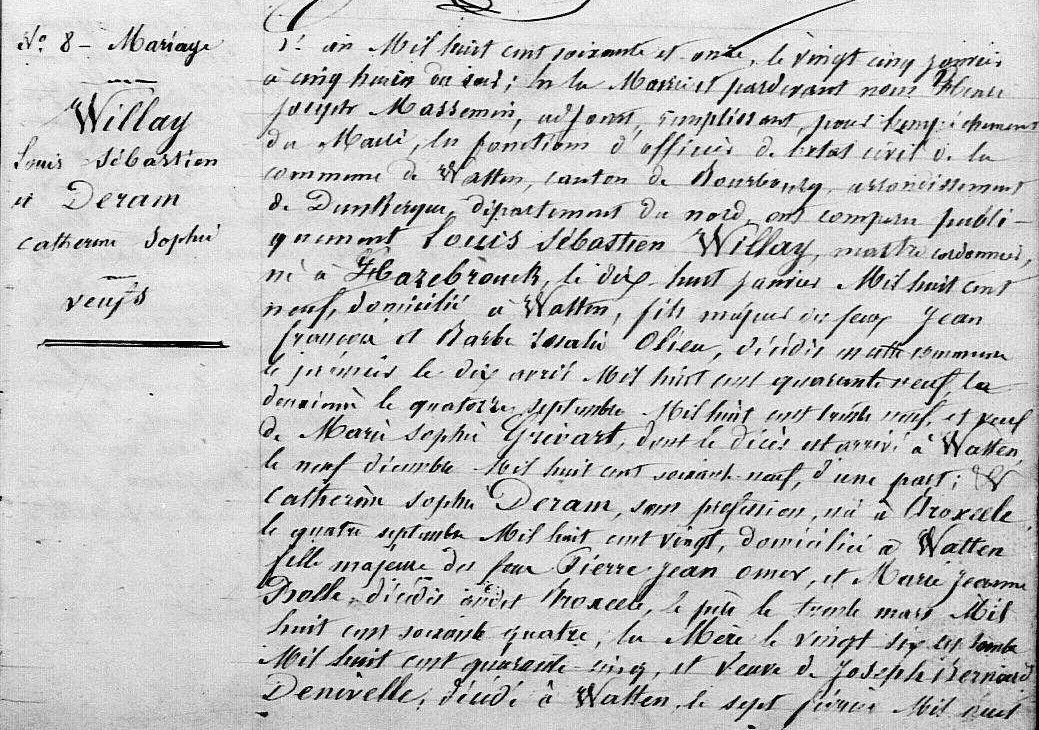 N° 8 - Mariage
Willay
Louis Sébastien
et Deram
Catherine Sophie
veufs
L'an Mil huit cent soixante et onze, le vingt cinq janvier
à cinq heures du soir; en la Mairie et pardevant nous Henri
Joseph Massemin, adjoint, remplissant, pour l'empêchement
du Maire, les fonctions d'officier de l'état civil de la
commune de Watten, canton de Bourbourg, arrondissement
de Dunkerque, département du nord, ont comparu publi-
quement Louis Sébastien Willay, maître cordonnier,
né à Hazebrouck, le dix huit janvier Mil huit cent
neuf, domicilié à Watten, fils majeur des feux Jean
françois et Barbe Rosalie Olieu, décédés en cette commune
le premier le dix avril Mil huit cent quarante neuf la
deuxième le quatorze septembre Mil huit cent trente neuf, et veuf
de Marie Sophie Grivart, dont le décès est arrivé à Watten,
le neuf décembre Mil huit cent soixante neuf, d'une part; &
Catherine Sophie Deram, sans profession, née à Broxeele
le quatre septembre Mil huit cent vingt, domiciliée à Watten
fille majeure des feux Pierre Jean Omer, et Marie Jeanne
décédés Broxeele, le père le trente mars Mil
huit cent soixante quatre, la Mère le vingt six
Mil huit cent quarante cinq, et Veuve de Joseph Bernard
Denivelle, décédé à Watten, le sept février Mil huit